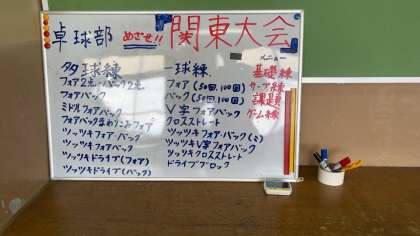 卓球部 めざせ!! 関東大会
メニュー
多球練
フォア2点・バック2点
フォアバック
ミドルフォアバック
フォアバックまわりこみフォア
ツッツキフォア・バック
ツッツキフォアバック
ツッツキドライブ(フォア)
ツッツキドライブ(バック)
一球練
フォア(50回,100回)
バック(50回,100回)
V字フォアバック
クロスストレート
ツッツキフォア・バック(ミ)
ツッツキV字フォアバック
ツッツキクロスストレート
ドライブブロック
基礎練
サーブ練
課題
ゲーム練